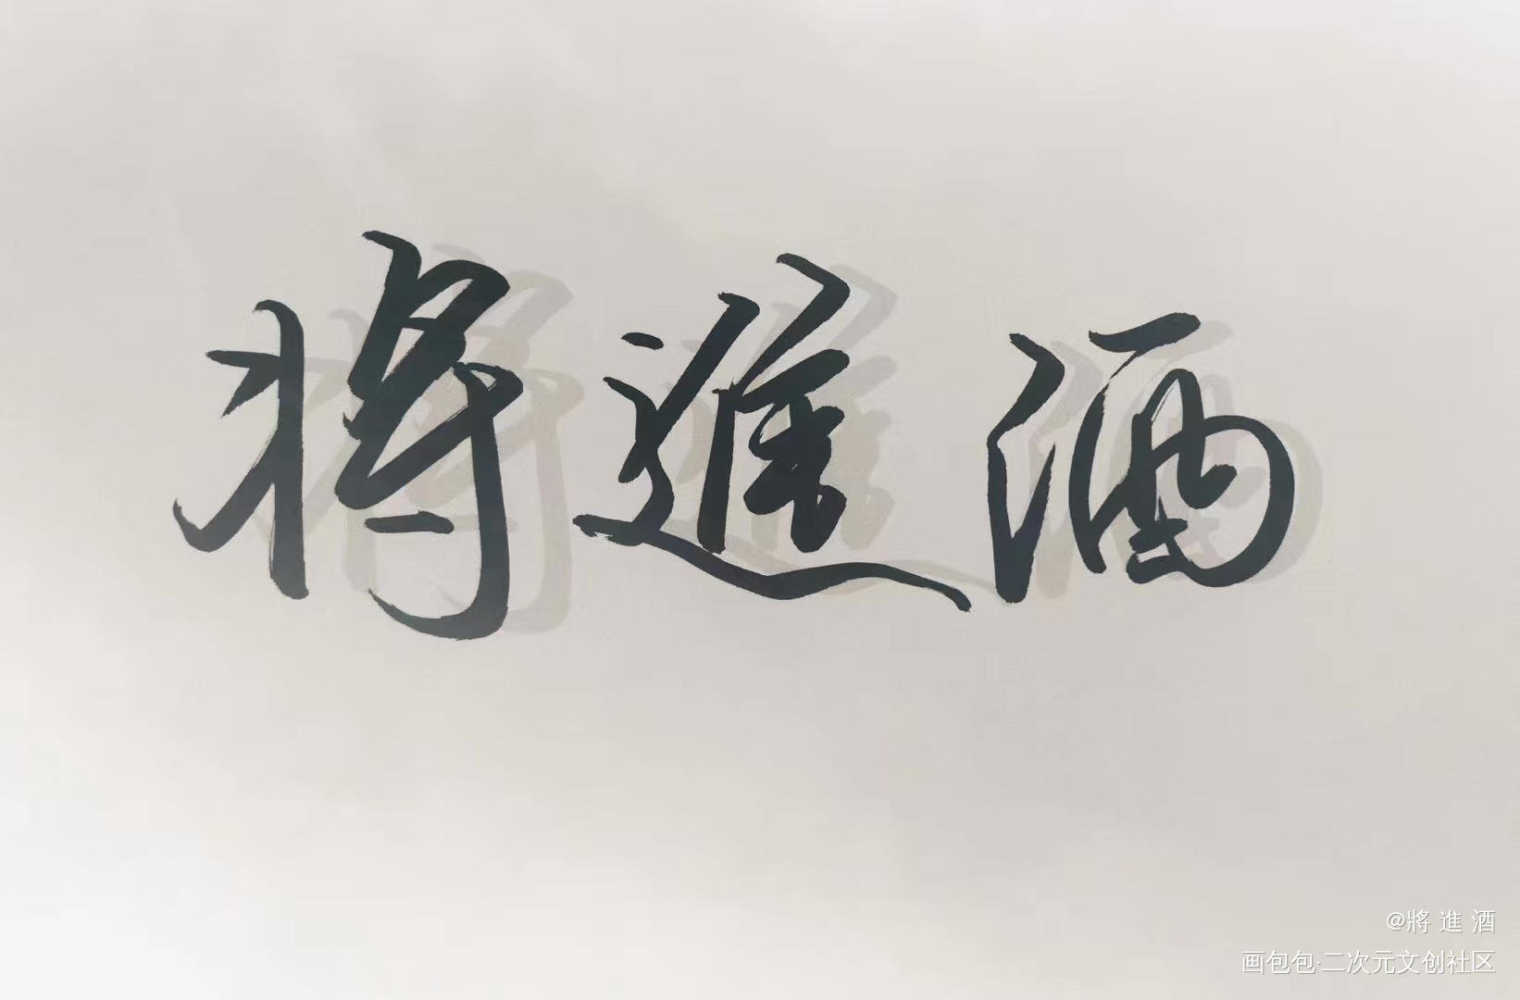 將進酒
@將 進 酒
画包包·二次元文创社区